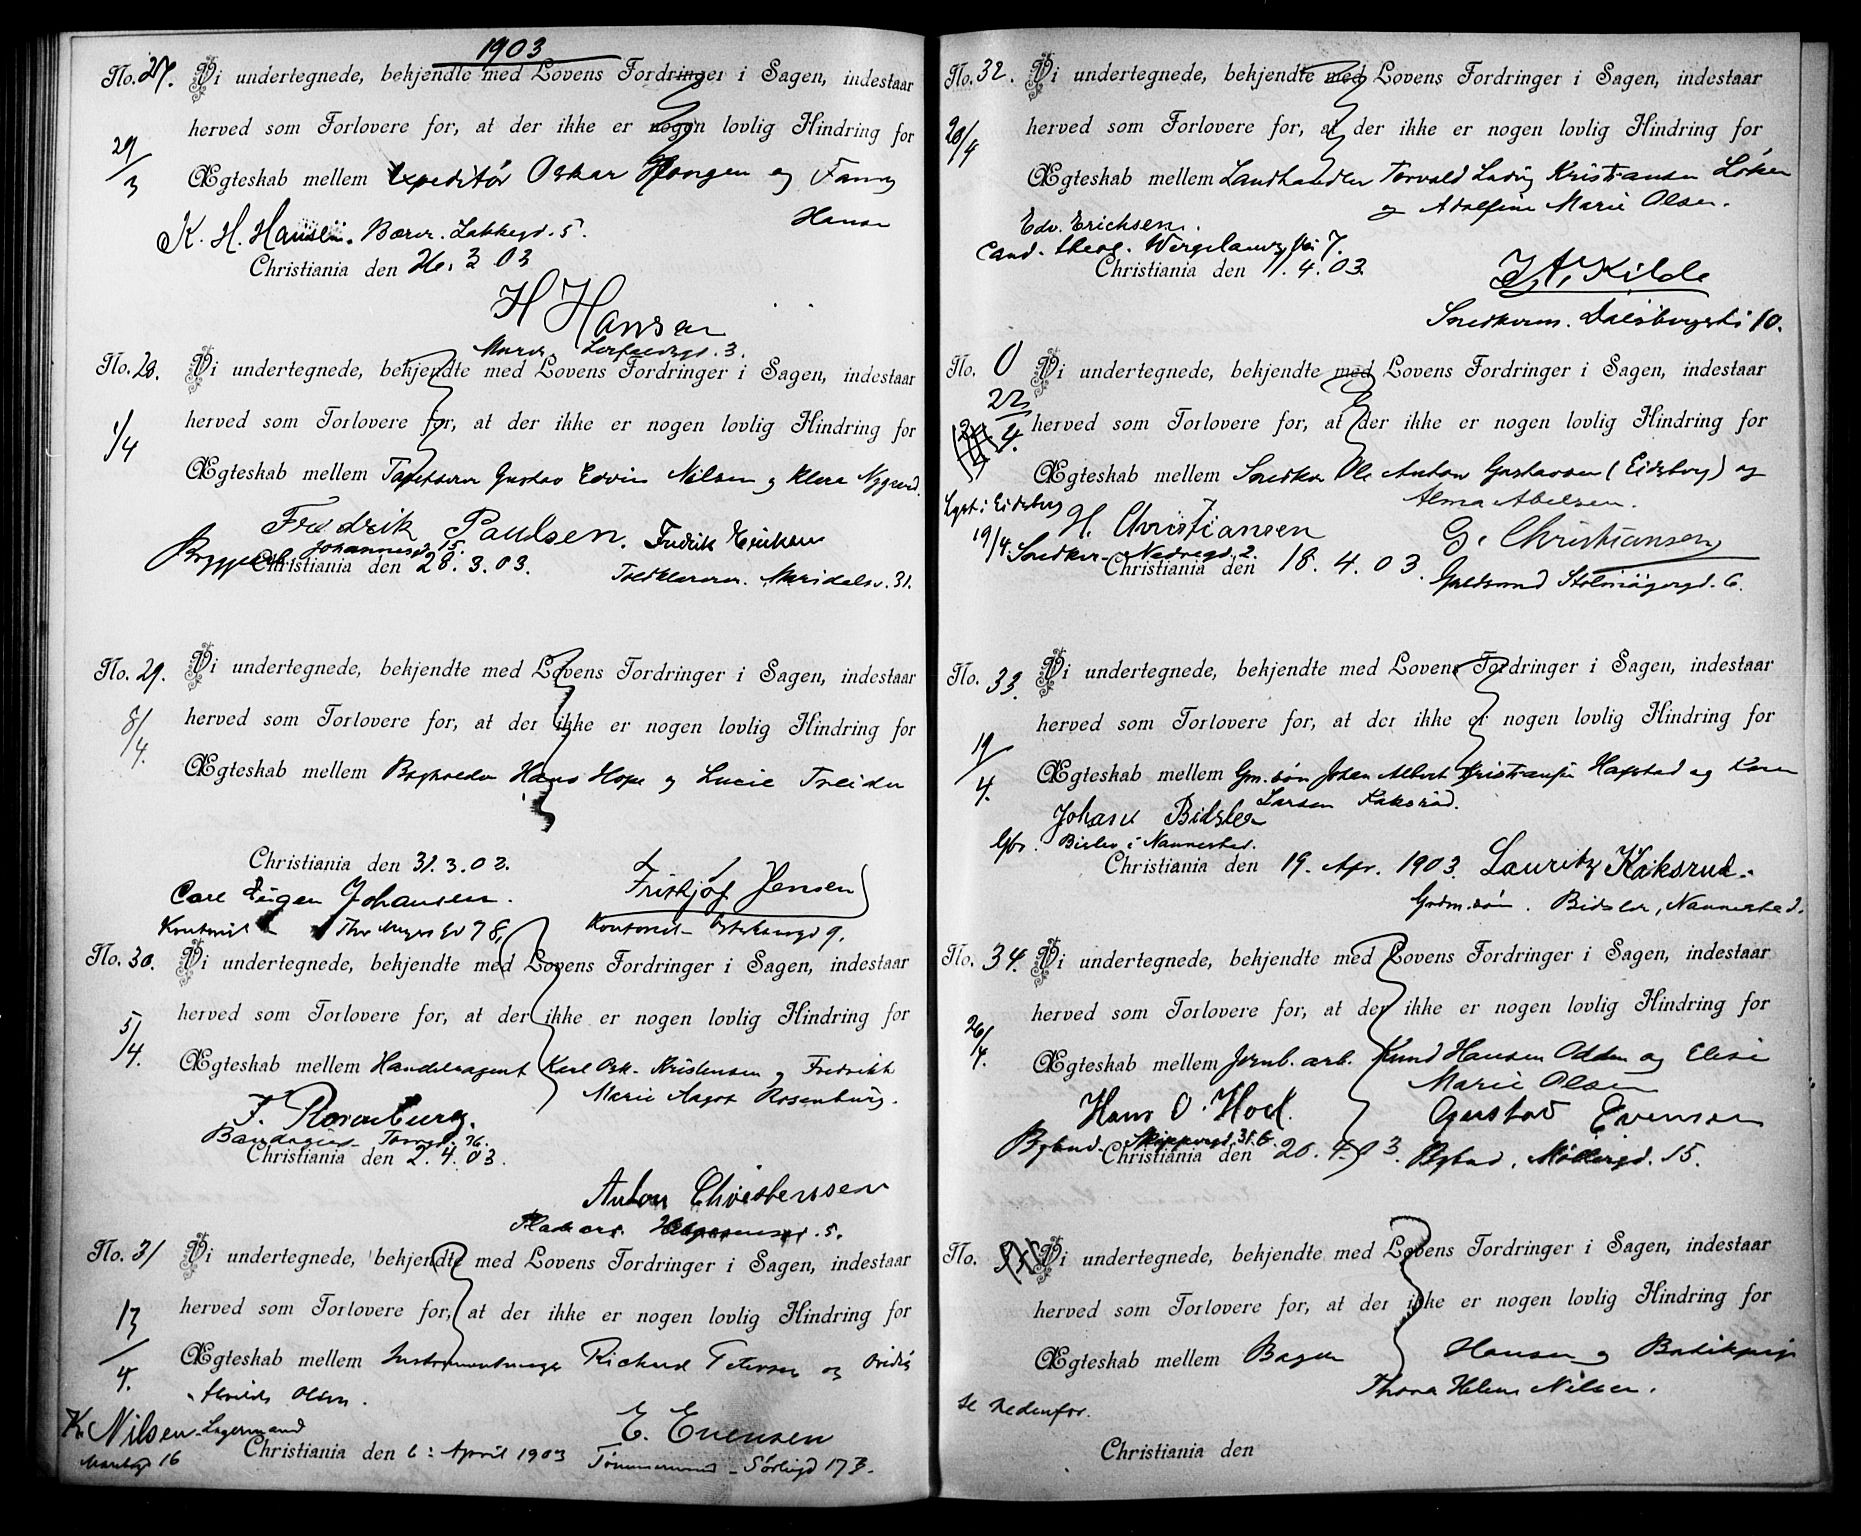 1903
No. 27. Vi undertegnede, bekjendte med Lovens Fordringer i Sagen, indestaar
herved som Forlovere for, at der ikke er nogen lovlig Hindring for
29/3
Ægteskab mellem Expeditør Oskar Haugen og Fanny
Hansen
K. H. Hansen. Bærer. Lakkegd. 5.
Christiania den 3 03
H Hansen
Murer 3.
No. 28. Vi undertegnede, bekjendte med Lovens Fordringer i Sagen, indestaar
herved som Forlovere for, at der ikke er nogen lovlig Hindring for
1/4
Ægteskab mellem Tapetserer Gustav Edvin Nilsen og Klara Nygaard.
Fredrik Paulsen. Fredrik Eriksen
Johannesgd 15.
Christiania den 28. 3. 03. Toldklarerer. Maridalsv. 31.
No. 29. Vi undertegnede, bekjendte med Lovens Fordringer i Sagen, indestaar
herved som Forlovere for, at der ikke er nogen lovlig Hindring for
8/4.
Ægteskab mellem Bogholder Hans Hope og Lucie Treider
Christiania den 31. 3. 03.
Carl Eugen Johansen. Frithjof Jensen
Kontorist Thv Meyers Gd 78, Kontorist 9.
No. 30. Vi undertegnede, bekjendte med Lovens Fordringer i Sagen, indestaar
herved som Forlovere for, at der ikke er nogen lovlig Hindring for
5/4.
Ægteskab mellem Handelsagent Karl Osk. Kristensen og Fredrikke
Marie Aagot Rosenburg.
F. Rosenburg.
Bandagist Torvgd. 26.
Christiania den 2. 4. 03.
Anton Christensen
5.
No. 31 Vi undertegnede, bekjendte med Lovens Fordringer i Sagen, indestaar
herved som Forlovere for, at der ikke er nogen lovlig Hindring for
13/4.
Ægteskab mellem Instrumentmager Richard Petersen og
Olsen.
K. Nilsen. Lagermand E. Evensen
16 Christiania den 6: April 1903 Tømmermand - Sørligd 17 B.
No. 32. Vi undertegnede, bekjendte med Lovens Fordringer i Sagen, indestaar
herved som Forlovere for, at der ikke er nogen lovlig Hindring for
20/4
Ægteskab mellem Landhandler Torvald Ludvig Kristiansen Løken
og Adolfine Marie Olsen.
Edv. Erichsen.
Cand. theol. Wergelandsvei 7.
Christiania den 4. 03. A. Kilde
Snedkerm. Dalsbergsti 10.
No. 0 Vi undertegnede, bekjendte med Lovens Fordringer i Sagen, indestaar
22/4.
herved som Forlovere for, at der ikke er nogen lovlig Hindring for
Ægteskab mellem Snedker Ole Anton Gustavsen (Eidsberg) og
Alma Abelsen.
Lyst i Eidsberg
19/4. H. Christiansen G. Christiansen
Snedker Nedregd. 2.
Christiania den 18. 4. 03. 6.
No. 33. Vi undertegnede, bekjendte med Lovens Fordringer i Sagen, indestaar
herved som Forlovere for, at der ikke er nogen lovlig Hindring for
19/4.
Ægteskab mellem Gm. søn Johan Albert Kristiansen Hagstad og Karen
Larsen Kaksrud.
Johan Bidsler
Gbr. Bisler i Nannestad.
Christiania den 19. Apr. 1903. Lauritz Kaksrud.
Grdm. søn. Bidsler, Nannestad.
No. 34. Vi undertegnede, bekjendte med Lovens Fordringer i Sagen, indestaar
herved som Forlovere for, at der ikke er nogen lovlig Hindring for
26/4.
Ægteskab mellem Jernb. arb. Knud Hansen Odden og Elise
Marie Olsen
Hans O. Hoel. Gustav Evensen
Bybud. Skippergd. 31 b.
Christiania den 20. 4. 03. Bybud. Møllergd. 15.
No. Vi undertegnede, bekjendte med Lovens Fordringer i Sagen, indestaar
herved som Forlovere for, at der ikke er nogen lovlig Hindring for
Ægteskab mellem Bager Hansen og Butikspige
Thora Helene Nilsen.
se nedenfor.
Christiania den